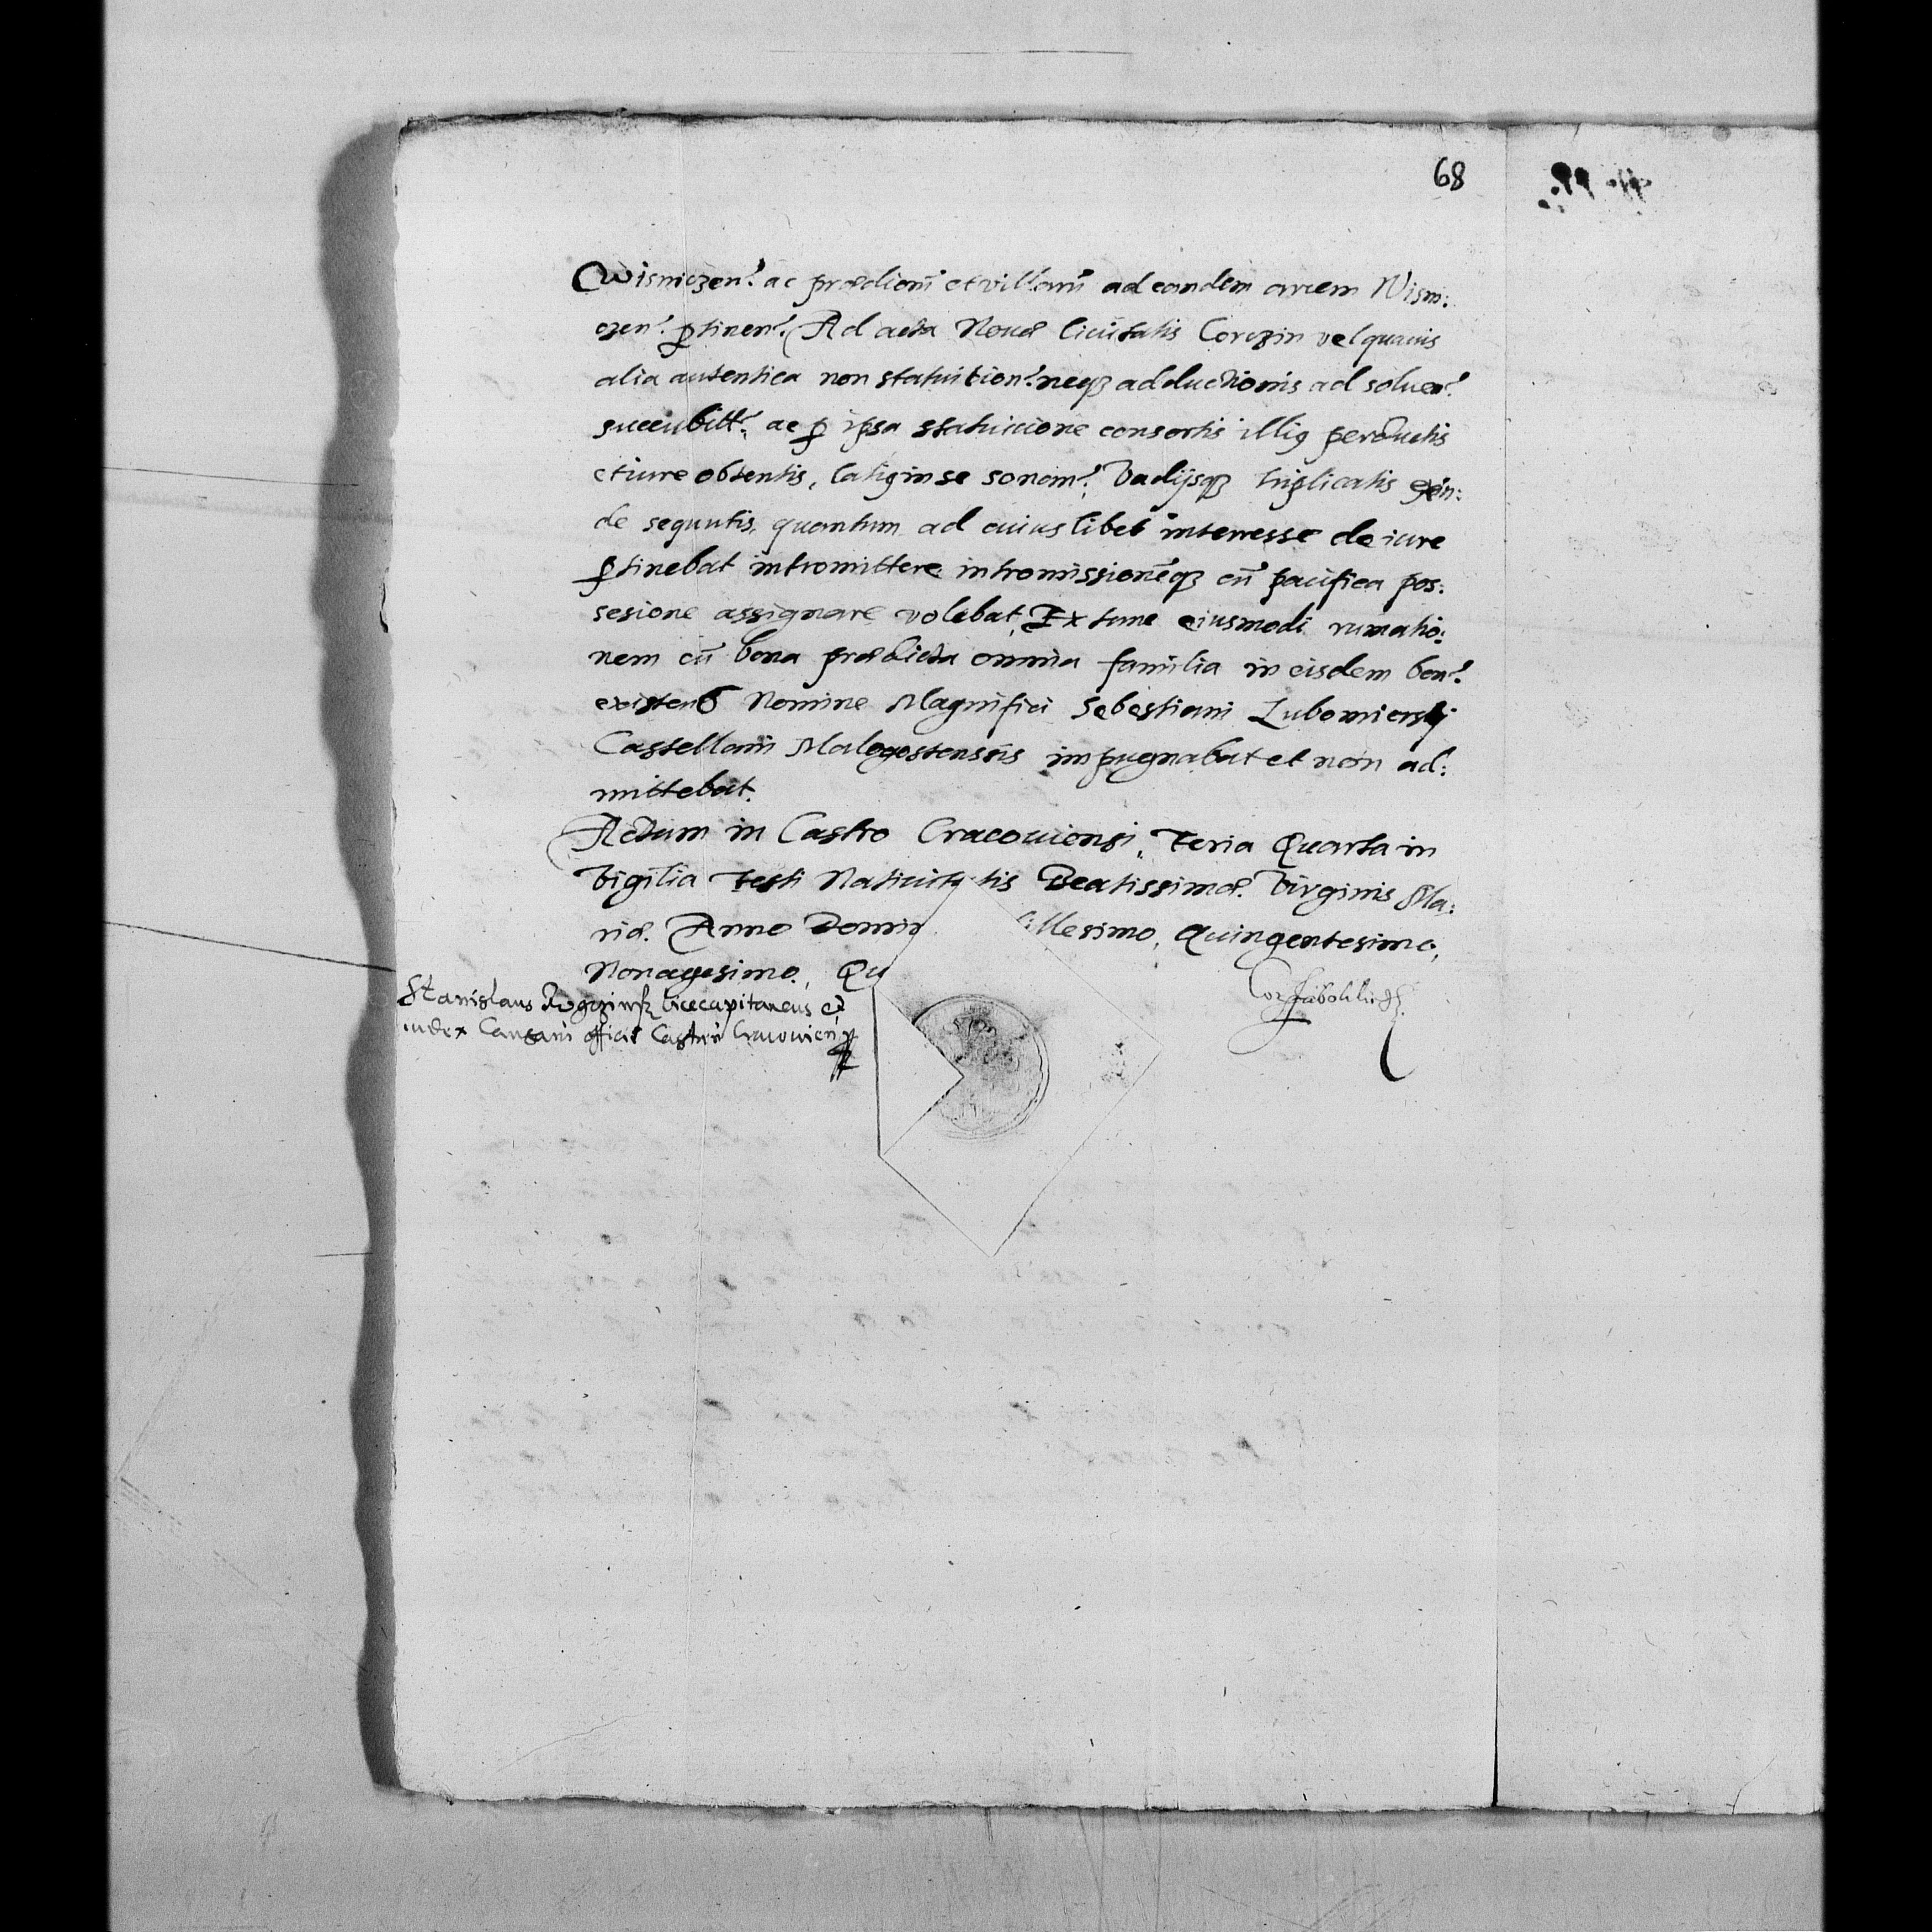 68
Wisniczen? ac prædiorū et villarū ad eandem arcem Wisni:
czen? ptinen? Ad acta Novæ Civitatis Corczin vel quævis
alia autentica non statuition? neqz adductionis ad solven?
succubitt?, ac p ipsa statuicione consortis illi9 perductis
et iure obtentis, lati9 in se sonan? Vadijsqz triplicatis exin:
de sequutis, quantum ad cuiuslibet interresse de iure
ptinebat intromittere intromissionēqz cū pacifica pos:
sesione assignare volebat, Ex tunc eiusmodi rumatio:
nem cū bona prædicta omnia familia in eisdem bon?
existens Nomine Magnifici Sebestiani Lubomiersky
Castellani Malogostensis impugnabat et non ad:
mittebat.
Actum in Castro Cracouiensi, Feria Quarta in
Vigilia Festi Nativitatis Beatissimæ Virginis Ma:
riæ. Anno Domin illesimo, Quingentesimo,
Nonagesimo, Qu
Stanislaus vicecapitaneus et
iudex Causarū officii Castrii Cracovien